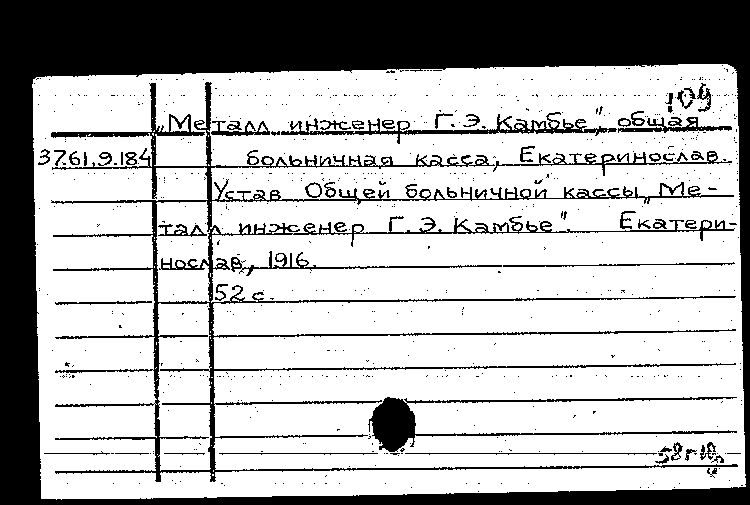 109
„Металл инженер Г. Э. Камбье", общая
37.61.9.184 больничная касса, Екатеринослав.
Устав Общей больничной кассы „Ме-
талл инженер Г. Э. Камбье". Екатери-
нослав, 1916.
52 с.